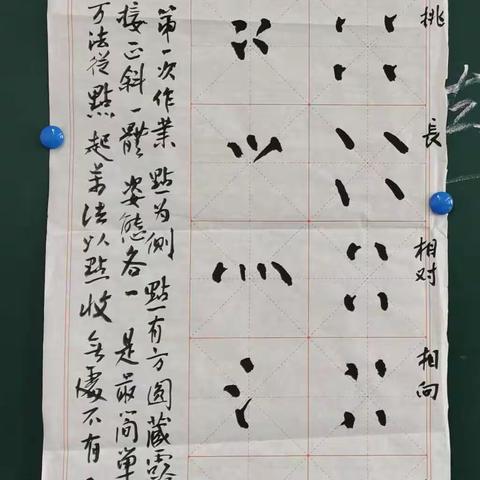 挑
長
相对
相向
第一次作業 點为側 點有方圆藏露
接正斜一體 姿態各一 是最简單
万法從點起萬法以點收無處不有